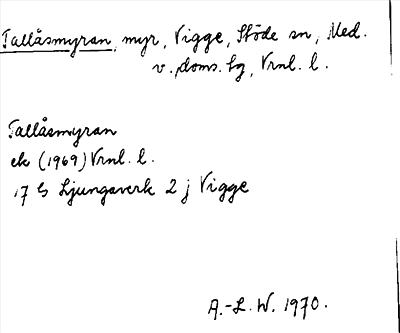 Tallåsmyran, myr, Vigge, Stöde sn, Med.
v. doms. sg, Vrnl. l.
Tallåsmyran
ek (1969) Vrnl. l.
17 G Ljungaverk 2 j Vigge
A.-L. W. 1970.